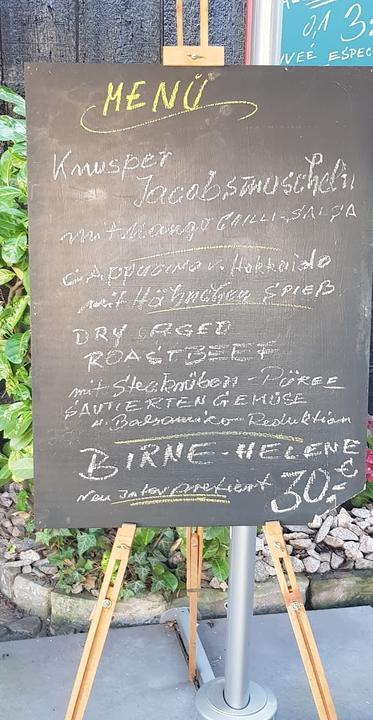 0,1 3
MENÜ
Knusper
Jacobsmuscheln
mit Mango CHILLI-SALSA
CAppucino v. Hokkaido
mit Hähnchen SPIEß
DRY AGED
ROASTBEEF
mit Steckrüben-PÜREE
SAUTIERTEN GEMÜSE
u. Balsamico-Reduktion
BIRNE-HELENE
Neu Interpretiert 30,-€